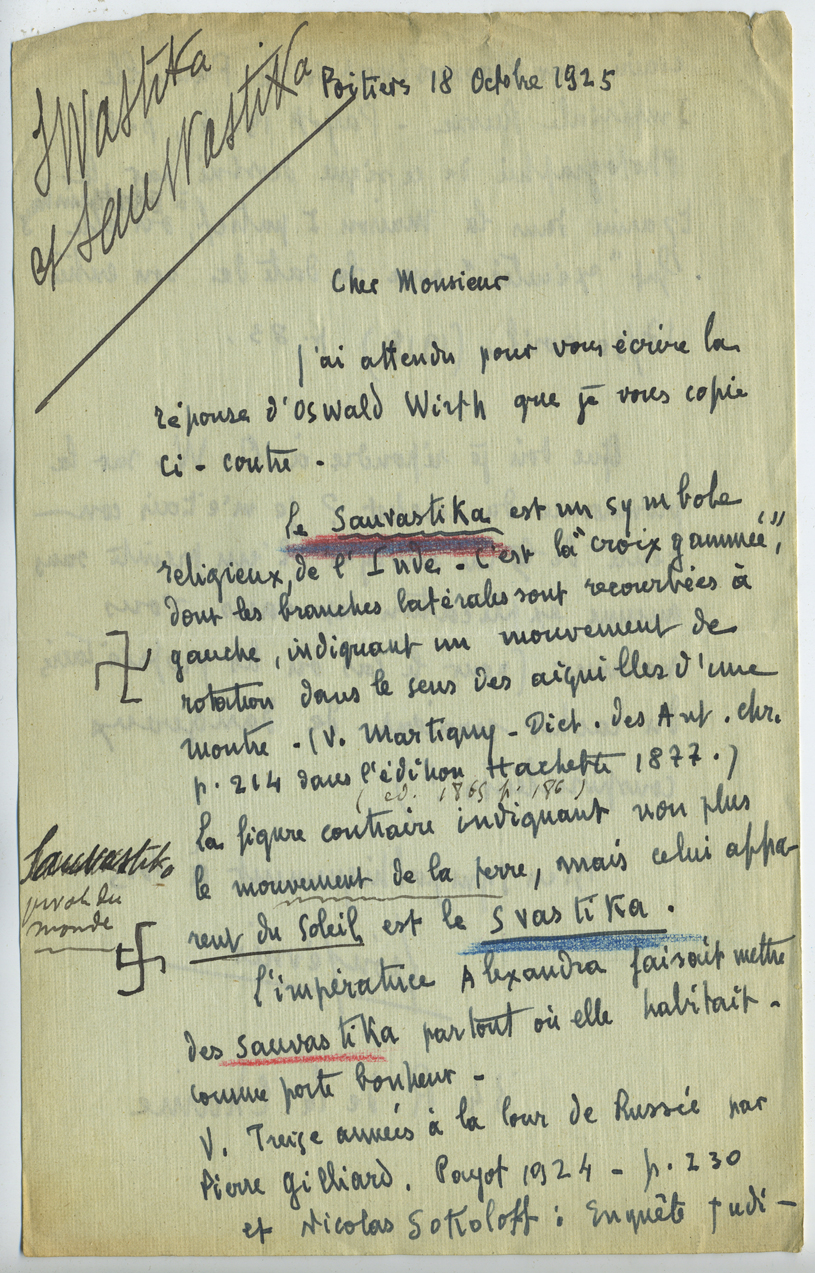 Swastika
et Sauwastika
Poitiers 18 Octobre 1925
Cher Monsieur
j'ai attendu pour vous écrire la
réponse d'Oswald Wirth que je vous copie
ci-contre -
Le Sauvastika est un symbole
religieux, de l'Inde - C'est la "croix gammée",
dont les branches latérales sont recourbées à
gauche, indiquant un mouvement de
rotation dans le sens des aiguilles d'une
montre - (V. Martigny - Dict. des Ant. chr.
p. 214 dans l'édition Hachette 1877.)
(ed. 1865 p.
La figure contraire indiquant non plus
le mouvement de la terre, mais celui appa-
rent du Soleil est le Svastika.
Sauvastika
pivot du
monde
L'impératrice Alexandra faisait mettre
des Sauvastika partout où elle habitait -
comme porte bonheur -
V. Treize années à la cour de Russie par
Pierre Gilliard. Payot 1924 - p. 230
et Nicolas Sokoloff : Enquête judi-